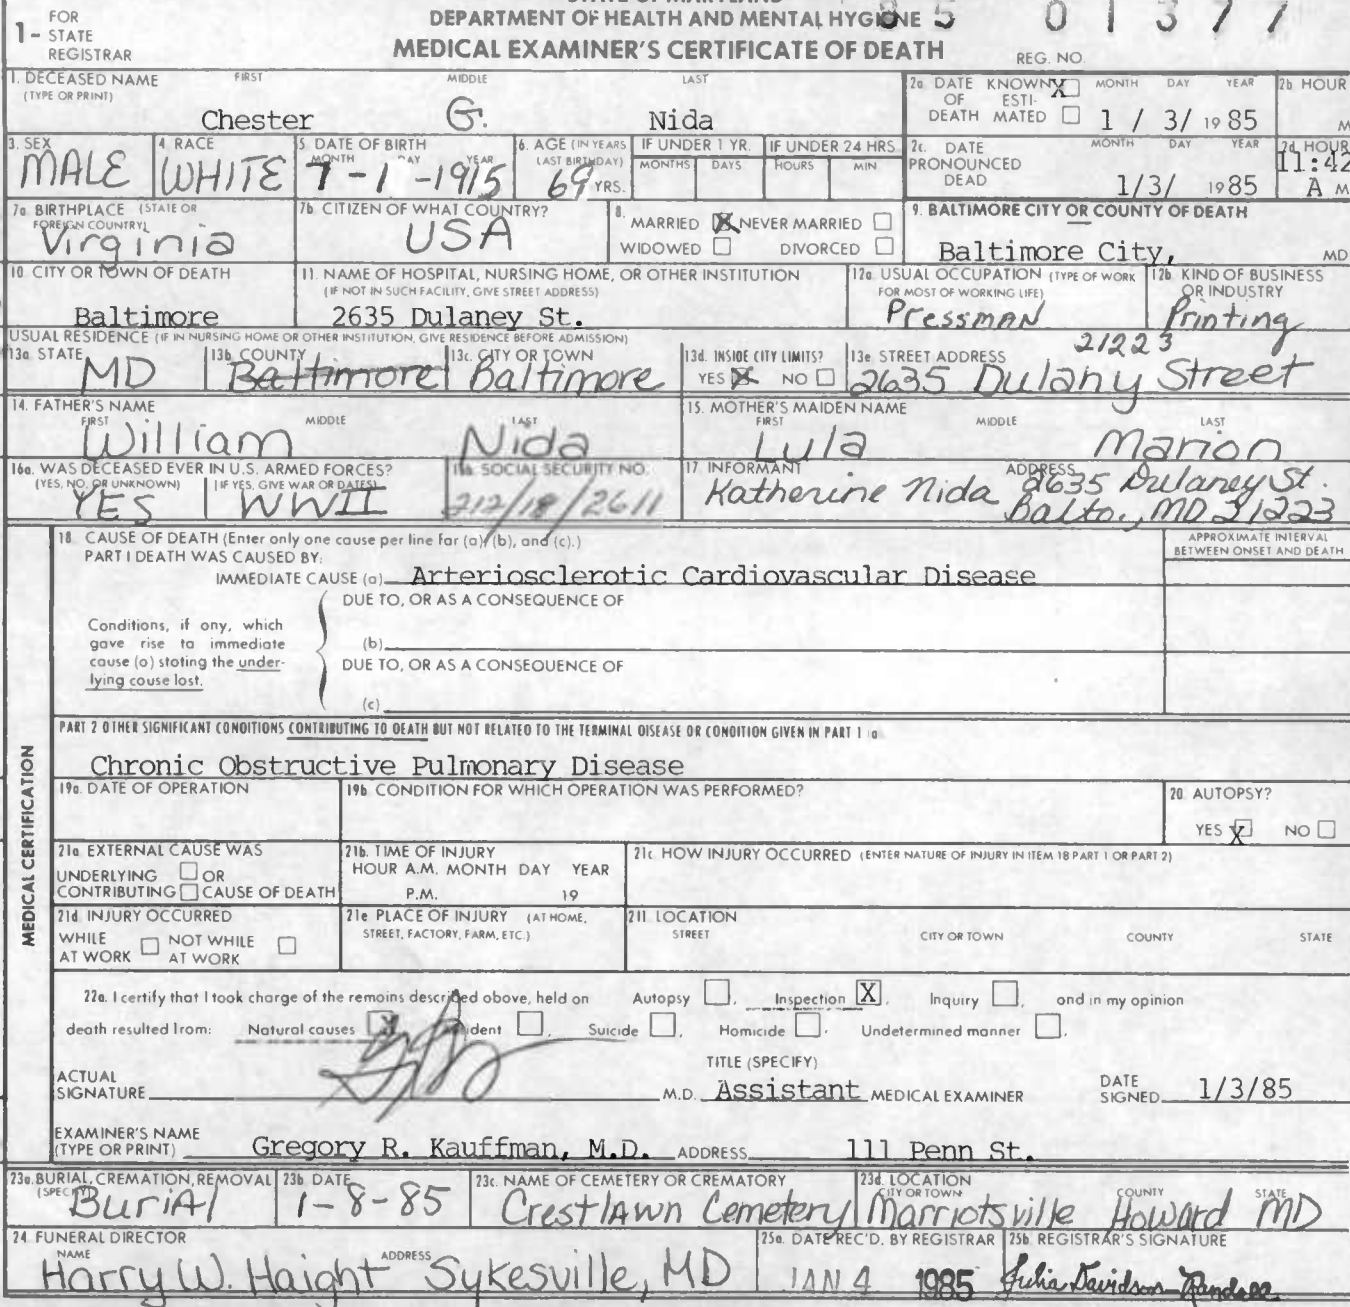 STATE OF MARYLAND
FOR
1- STATE
REGISTRAR
DEPARTMENT OF HEALTH AND MENTAL HYGIENE
MEDICAL EXAMINER'S CERTIFICATE OF DEATH
85 01377
REG. NO.
1. DECEASED NAME FIRST MIDDLE LAST
(TYPE OR PRINT)
Chester G. Nida
2a. DATE KNOWN X MONTH DAY YEAR
OF ESTI-
DEATH MATED 1 / 3/ 19 85
2b HOUR
M
3. SEX
MALE
4. RACE
WHITE
5. DATE OF BIRTH
MONTH DAY YEAR
7-1-1915
6. AGE (IN YEARS
LAST BIRTHDAY)
69 YRS.
IF UNDER 1 YR.
MONTHS DAYS
IF UNDER 24 HRS
HOURS MIN
2c. DATE MONTH DAY YEAR
PRONOUNCED
DEAD 1/3/ 1985
2d HOUR
11:42
A M
7a. BIRTHPLACE (STATE OR
FOREIGN COUNTRY)
Virginia
7b CITIZEN OF WHAT COUNTRY?
USA
8.
MARRIED X NEVER MARRIED
WIDOWED DIVORCED
9. BALTIMORE CITY OR COUNTY OF DEATH
Baltimore City, MD
10. CITY OR TOWN OF DEATH
Baltimore
11. NAME OF HOSPITAL, NURSING HOME, OR OTHER INSTITUTION
(IF NOT IN SUCH FACILITY, GIVE STREET ADDRESS)
2635 Dulaney St.
12a. USUAL OCCUPATION (TYPE OF WORK
FOR MOST OF WORKING LIFE)
Pressman
12b. KIND OF BUSINESS
OR INDUSTRY
Printing
USUAL RESIDENCE (IF IN NURSING HOME OR OTHER INSTITUTION, GIVE RESIDENCE BEFORE ADMISSION)
13a STATE
MD
13b COUNTY
Baltimore
13c. CITY OR TOWN
Baltimore
13d. INSIDE CITY LIMITS?
YES X NO
13e STREET ADDRESS
21223
2635 Dulany Street
14. FATHER'S NAME
FIRST MIDDLE LAST
William Nida
15. MOTHER'S MAIDEN NAME
FIRST MIDDLE LAST
Lula Marion
16a. WAS DECEASED EVER IN U.S. ARMED FORCES?
(YES, NO, OR UNKNOWN) (IF YES, GIVE WAR OR DATES)
YES WWII
SOCIAL SECURITY NO.
212/18/2611
17. INFORMANT ADDRESS
Katherine Nida 2635 Dulaney St.
Balto., MD 21223
18. CAUSE OF DEATH (Enter only one cause per line for (a), (b), and (c).)
PART I DEATH WAS CAUSED BY:
IMMEDIATE CAUSE (a) Arteriosclerotic Cardiovascular Disease
APPROXIMATE INTERVAL
BETWEEN ONSET AND DEATH
DUE TO, OR AS A CONSEQUENCE OF
Conditions, if any, which
gave rise to immediate
cause (a) stating the under-
lying cause last.
(b)
DUE TO, OR AS A CONSEQUENCE OF
(c)
PART 2 OTHER SIGNIFICANT CONDITIONS CONTRIBUTING TO DEATH BUT NOT RELATED TO THE TERMINAL DISEASE OR CONDITION GIVEN IN PART 1 a
Chronic Obstructive Pulmonary Disease
MEDICAL CERTIFICATION
19a. DATE OF OPERATION
19b CONDITION FOR WHICH OPERATION WAS PERFORMED?
20 AUTOPSY?
YES X NO
21a EXTERNAL CAUSE WAS
UNDERLYING OR
CONTRIBUTING CAUSE OF DEATH
21b. TIME OF INJURY
HOUR A.M. MONTH DAY YEAR
P.M. 19
21c. HOW INJURY OCCURRED (ENTER NATURE OF INJURY IN ITEM 18 PART 1 OR PART 2)
21d INJURY OCCURRED
WHILE NOT WHILE
AT WORK AT WORK
21e PLACE OF INJURY (AT HOME,
STREET, FACTORY, FARM, ETC.)
21f. LOCATION
STREET CITY OR TOWN COUNTY STATE
22a. I certify that I took charge of the remains described above, held on Autopsy, Inspection X, Inquiry, and in my opinion
death resulted from: Natural causes X Accident, Suicide, Homicide, Undetermined manner.
ACTUAL
SIGNATURE
TITLE (SPECIFY)
M.D. Assistant MEDICAL EXAMINER
DATE
SIGNED 1/3/85
EXAMINER'S NAME
(TYPE OR PRINT) Gregory R. Kauffman, M.D. ADDRESS 111 Penn St.
23a. BURIAL, CREMATION, REMOVAL
(SPECIFY)
Burial
23b DATE
1-8-85
23c. NAME OF CEMETERY OR CREMATORY
Crestlawn Cemetery
23d. LOCATION
CITY OR TOWN COUNTY STATE
Marriotsville Howard MD
24 FUNERAL DIRECTOR
NAME ADDRESS
Harry W. Haight Sykesville, MD
25a. DATE REC'D. BY REGISTRAR
JAN 4 1985
25b REGISTRAR'S SIGNATURE
Julia Davidson-Randall